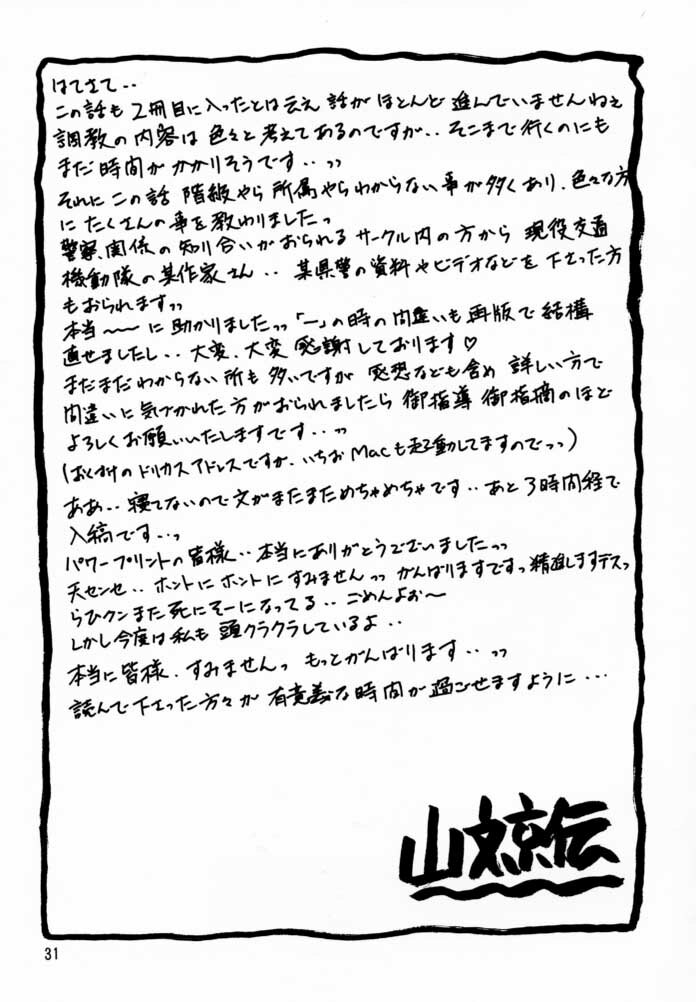 はてさて・・
この話も2冊目に入ったとは云え 話が ほとんど 進んでいませんねぇ
調教の内容は 色々と考えてあるのですが・・そこまで行くのにも
まだ時間が かかりそうです・・ッッ
それに この話 階級やら 所属やらわからない事が多くあり、色々な方
に たくさんの事を教わりましたっ
警察関係の知り合いがおられる サークル内の方から 現役交通
機動隊の某作家さん・・ 某県警の資料やビデオなどを 下さった方
もおられますッッ
本当〜〜に 助かりましたッッ「一」の時の間違いも再版で 結構
直せましたし・・大変、大変 感謝しております♡
まだまだわからない所も 多いですが 感想なども含め 詳しい方で
間違いに気づかれた方がおられましたら 御指導 御指摘のほど
よろしくお願いいたしますです・・ッッ
(おくづけのドリカスアドレスですが、いちおMacも起動してますのでっっ)
ああ・・寝てないので文がまたまためちゃめちゃです・・あと3時間経で
入稿です・・ッ
パワープリントの皆様・・本当にありがとうございましたッッ
天センセ・・ホントに ホントに すみませんッッ がんばりますですっ精進しますデスっ
らひクンまた死にそーになってる・・ごめんよぉ〜
しかし今度は私も 頭クラクラしているよ・・
本当に皆様、すみませんっ もっとがんばります・・ッッ
読んで下さった方々が 有意義な時間が 過ごせますように・・・
山文京伝
31